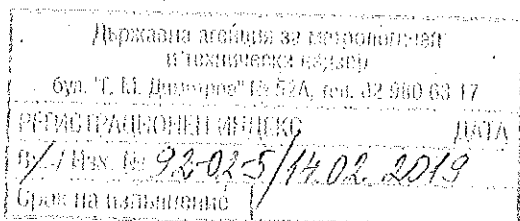 Държавна агенция за метрологичен
и технически надзор
бул. "Г. М. Димитров" № 52А, тел. 02 980 63 17
РЕГИСТРАЦИОНЕН ИНДЕКС ДАТА
Вх./Изх. № 92-02-5/14.02.2019
Срок на изпълнение